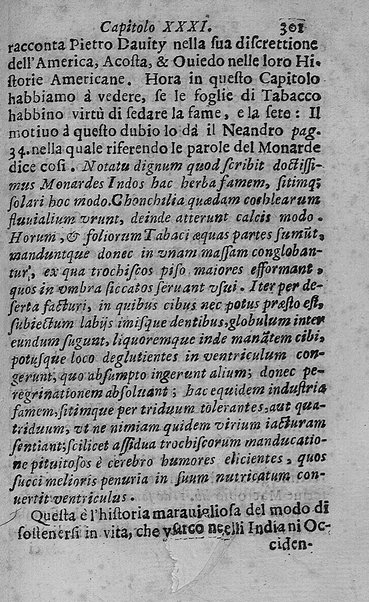 Capitolo XXXI. 301
racconta Pietro Dauity nella sua discrettione
dell'America, Acosta, & Ouiedo nelle loro Hi-
storie Americane. Hora in questo Capitolo
habbiamo à vedere, se le foglie di Tabacco
habbino virtù di sedare la fame, e la sete: Il
motiuo à questo dubio lo dà il Neandro pag.
34. nella quale riferendo le parole del Monarde
dice cosi. Notatu dignum quod scribit doctissi-
mus Monardes Indos hac herba famem, sitimq;
solari hoc modo. Chonchilia quædam cochlearum
fluuialium vrunt, deinde atterunt calcis modo.
Horum, & foliorum Tabaci æquas partes sumũt,
manduntque donec in vnam massam congloban-
tur, ex qua trochiscos piso maiores efformant,
quos in vmbra siccatos seruant vsui. Iter per de-
serta facturi, in quibus cibus nec potus præsto est,
subiectum labijs imisque dentibus, globulum inter
eundum sugunt, liquoremque inde manãtem cibi,
potusque loco deglutientes in ventriculum con-
gerunt, quo absumpto ingerunt alium; donec pe-
regrinationem absoluant; hac equidem industria
famem, sitimque per triduum tolerantes, aut qua-
triduum, vt ne nimiam quidem virium iacturam
sentiant; scilicet assidua trochiscorum manducatio-
ne pituitosos è cerebro humores elicientes, quos
succi melioris penuria in suum nutricatum con-
uertit ventriculus.
Questa è l'historia marauigliosa del modo di
sostenersi in vita, che
ni Oc-
ciden-